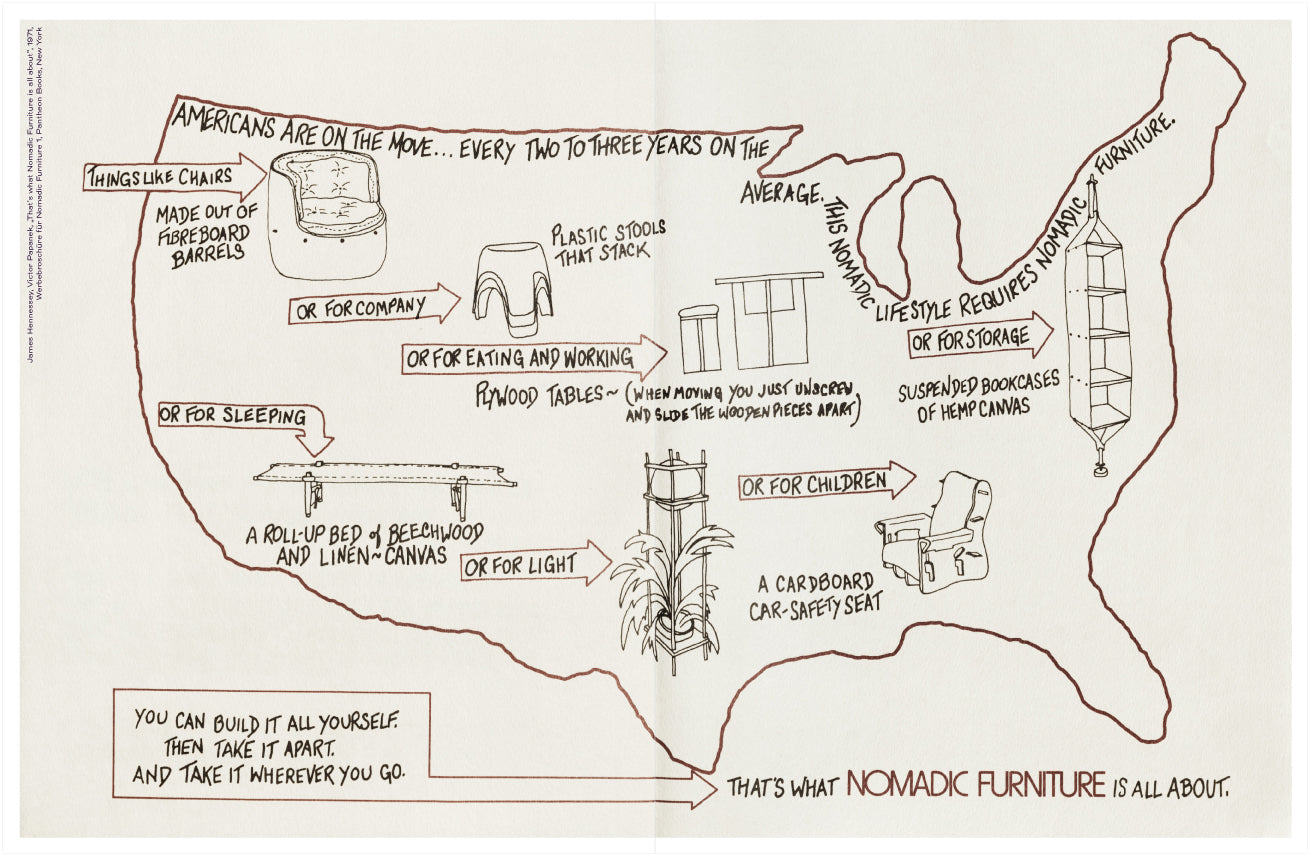 James Hennessey, Victor Papanek, „That's what Nomadic Furniture is all about“, 1971,
Werbebroschüre für Nomadic Furniture 1, Pantheon Books, New York
AMERICANS ARE ON THE MOVE... EVERY TWO TO THREE YEARS ON THE
AVERAGE. THIS NOMADIC LIFESTYLE REQUIRES NOMADIC FURNITURE.
THINGS LIKE CHAIRS
MADE OUT OF
FIBREBOARD
BARRELS
OR FOR COMPANY
PLASTIC STOOLS
THAT STACK
OR FOR EATING AND WORKING
PLYWOOD TABLES~ (WHEN MOVING YOU JUST UNSCREW
AND SLIDE THE WOODEN PIECES APART)
OR FOR STORAGE
SUSPENDED BOOKCASES
OF HEMP CANVAS
OR FOR SLEEPING
A ROLL-UP BED of BEECHWOOD
AND LINEN~CANVAS
OR FOR LIGHT
OR FOR CHILDREN
A CARDBOARD
CAR-SAFETY SEAT
YOU CAN BUILD IT ALL YOURSELF.
THEN TAKE IT APART.
AND TAKE IT WHEREVER YOU GO.
THAT'S WHAT NOMADIC FURNITURE IS ALL ABOUT.